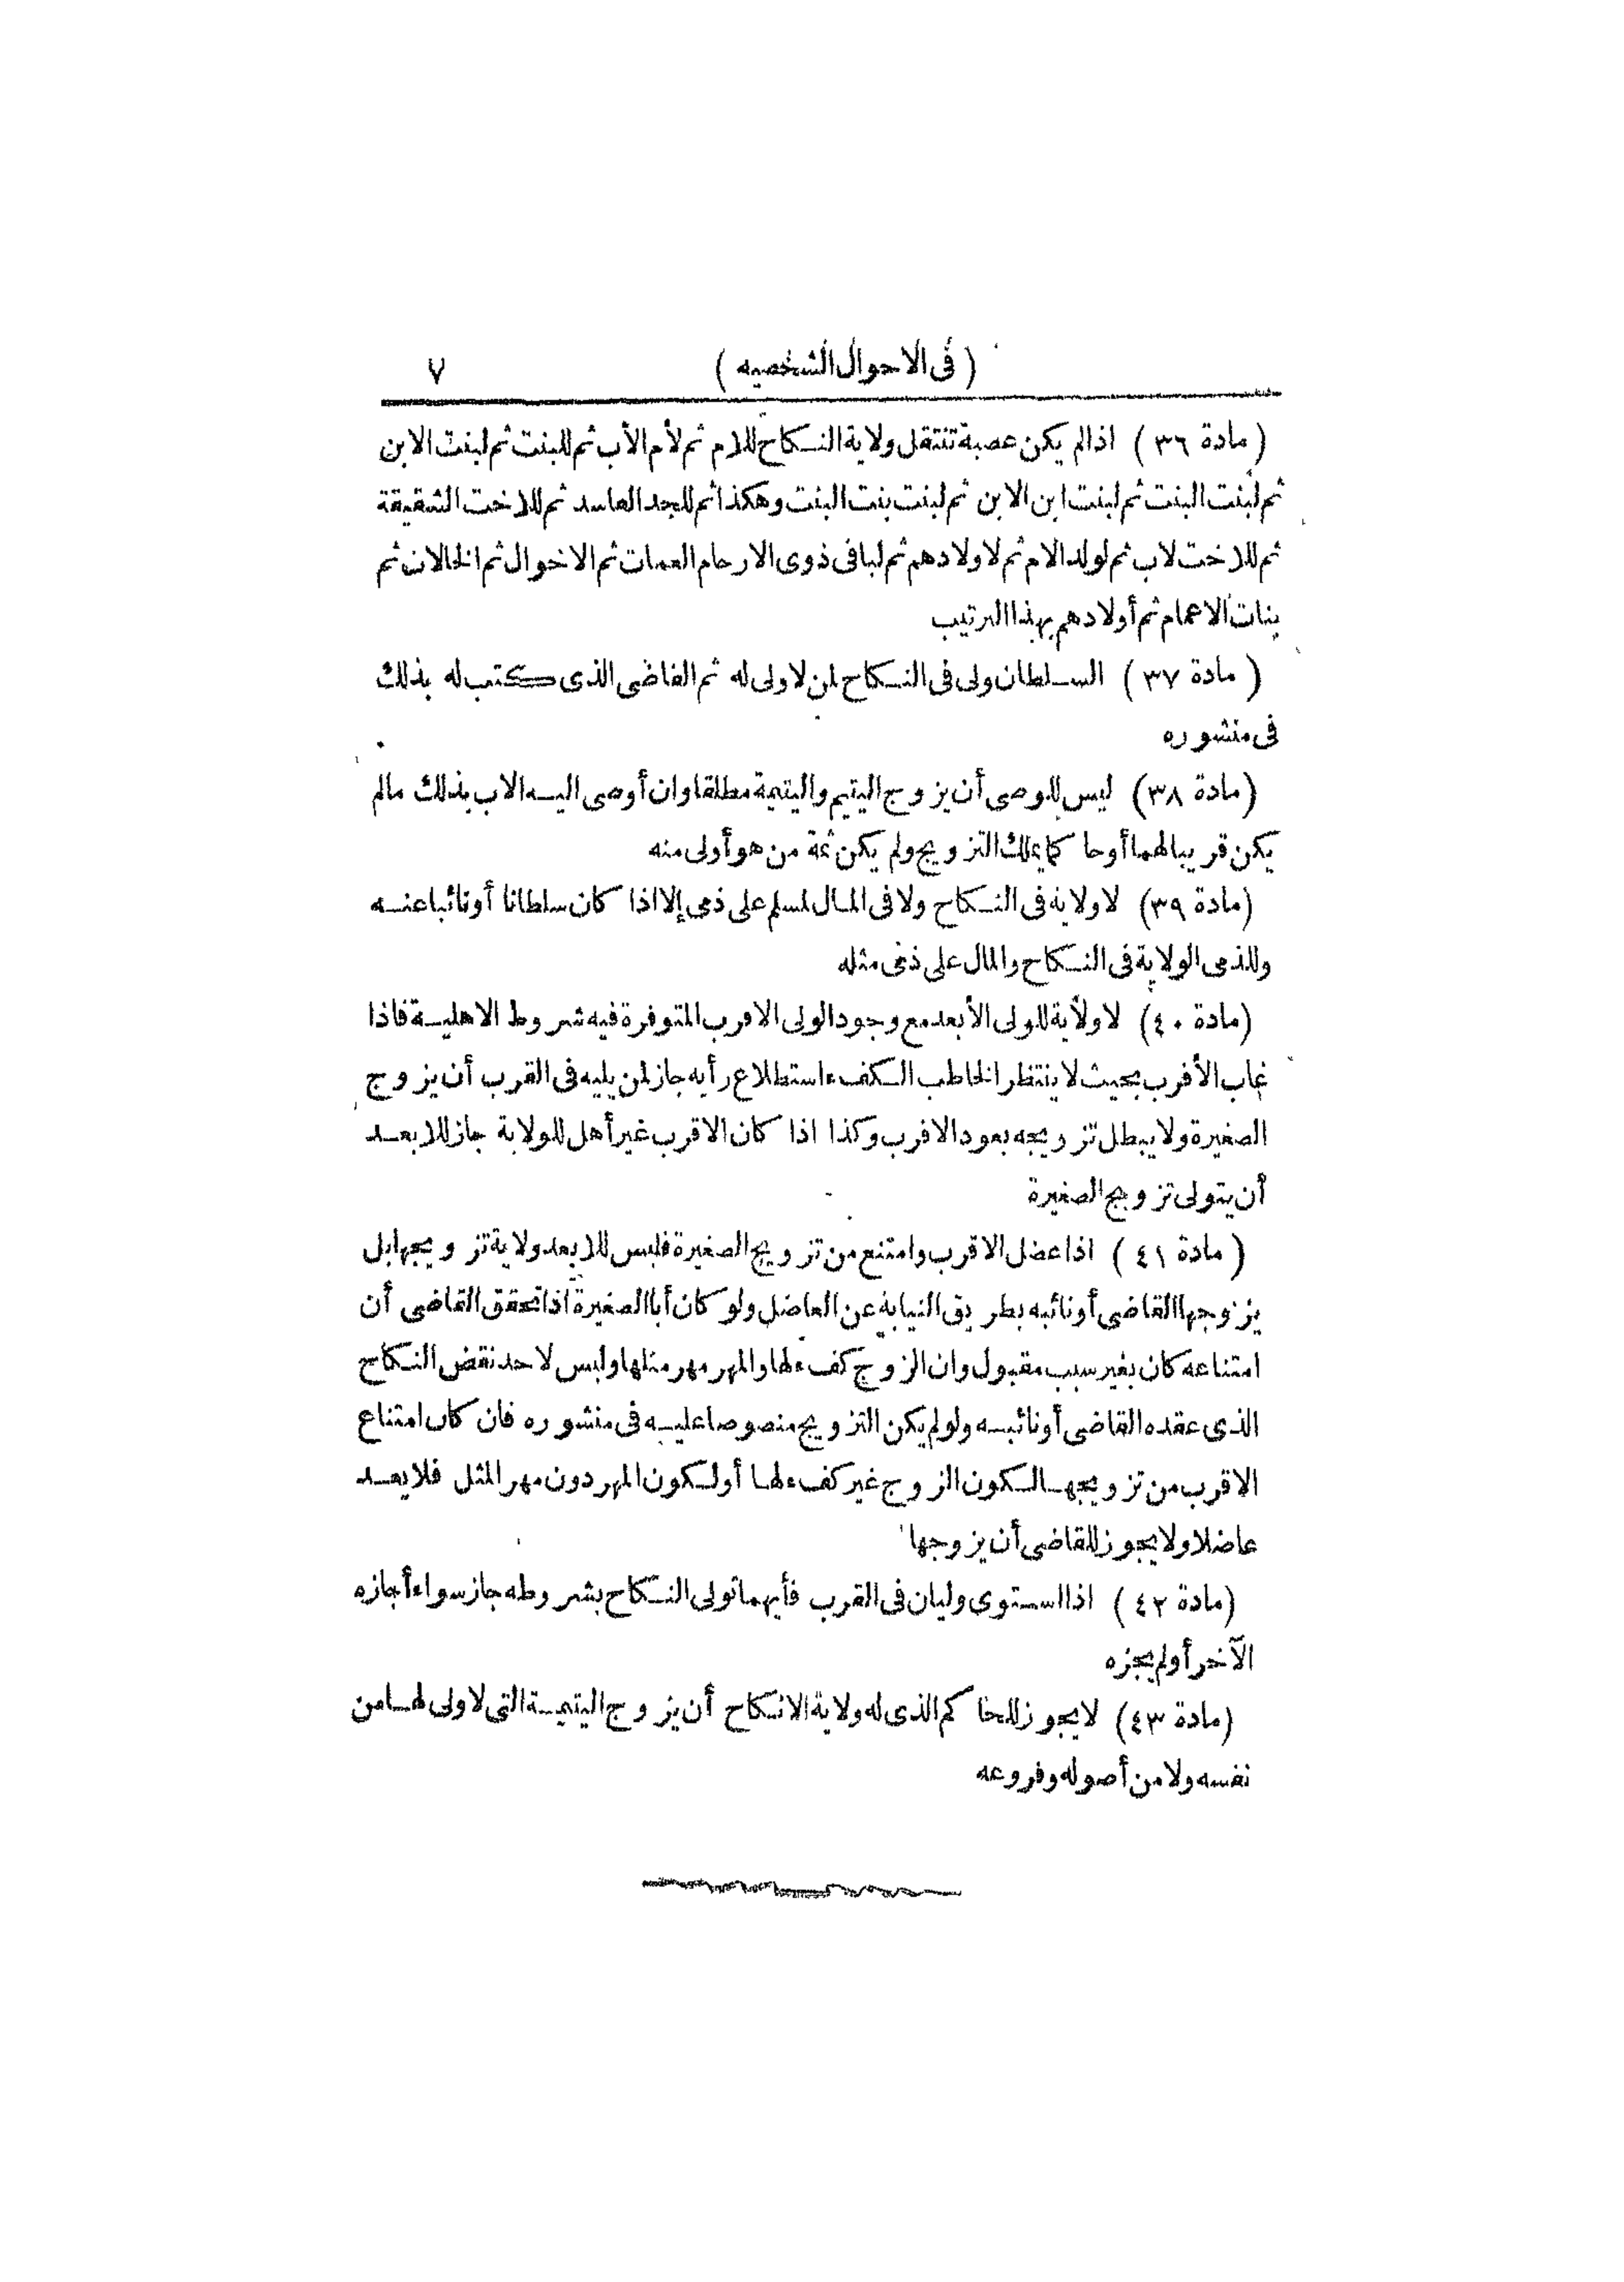 (فى الاحوال الشخصيه) ٧
(مادة ٣٦) اذا لم يكن عصبة تنتقل ولاية النكاح للام ثم لأم الأب ثم للبنت ثم لبنت الابن
ثم لبنت البنت ثم لبنت ابن الابن ثم لبنت بنت البنت وهكذا ثم للجد الفاسد ثم للاخت الشقيقة
ثم للاخت لاب ثم لولد الام ثم لاولادهم ثم لباقى ذوى الارحام العمات ثم الاخوال ثم الخالات ثم
بنات الاعمام ثم أولادهم بهذا الترتيب
(مادة ٣٧) السلطان ولى فى النكاح لمن لا ولى له ثم القاضى الذى كتب له بذلك
فى منشوره
(مادة ٣٨) ليس للوصى أن يزوج اليتيم واليتيمة مطلقا وان أوصى اليه الاب بذلك مالم
يكن قريبا لهما أو حاكما يملك التزويج ولم يكن ثمة من هو أولى منه
(مادة ٣٩) لا ولاية فى النكاح ولا فى المال لمسلم على ذمى إلا اذا كان سلطانا أو نائبا عنه
وللذمى الولاية فى النكاح والمال على ذمى مثله
(مادة ٤٠) لا ولاية للولى الأبعد مع وجود الولى الاقرب المتوفرة فيه شروط الاهلية فاذا
غاب الأقرب بحيث لا ينتظر الخاطب الكفء استطلاع رأيه جاز لمن يليه فى القرب أن يزوج
الصغيرة ولا يبطل تزويجه بعود الاقرب وكذا اذا كان الاقرب غير أهل للولاية جاز للابعد
أن يتولى تزويج الصغيرة
(مادة ٤١) اذا عضل الاقرب وامتنع من تزويج الصغيرة فليس للابعد ولاية تزويجها بل
يزوجها القاضى أو نائبه بطريق النيابة عن العاضل ولو كان أبا الصغيرة اذا تحقق القاضى أن
امتناعه كان بغير سبب مقبول وان الزوج كفء لها والمهر مهر مثلها وليس لاحد نقض النكاح
الذى عقده القاضى أو نائبه ولو لم يكن التزويج منصوصا عليه فى منشوره فان كان امتناع
الاقرب من تزويجها لكون الزوج غير كفء لها أو لكون المهر دون مهر المثل فلا يعد
عاضلا ولا يجوز للقاضى أن يزوجها
(مادة ٤٢) اذا استوى وليان فى القرب فأيهما تولى النكاح بشروطه جاز سواء أجازه
الآخر أو لم يجزه
(مادة ٤٣) لا يجوز للحاكم الذى له ولاية الانكاح أن يزوج اليتيمة التى لا ولى لها من
نفسه ولا من أصوله وفروعه